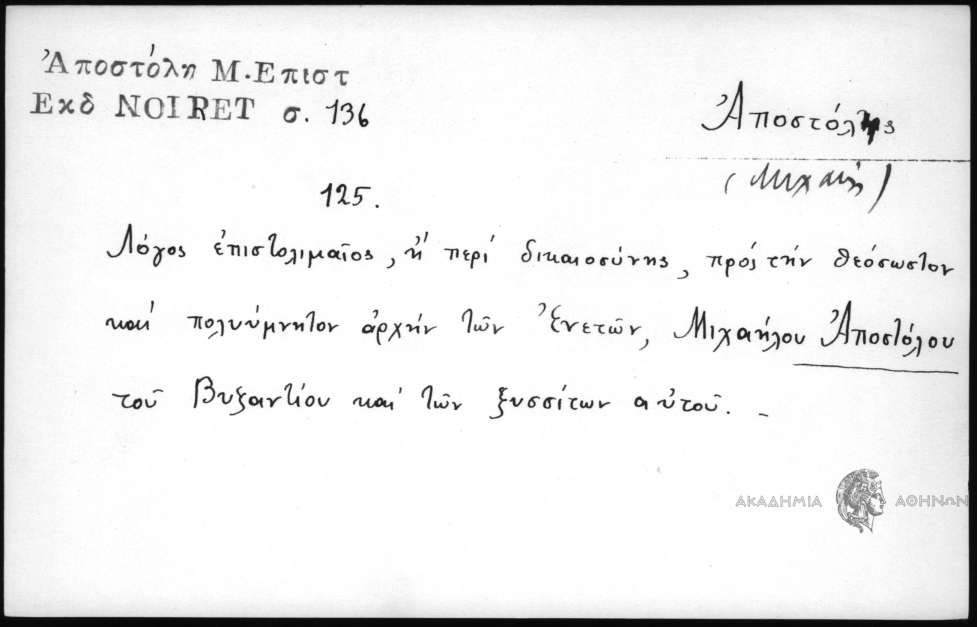 Ἀποστόλη Μ. Επιστ
Εκδ NOIRET σ. 136
Ἀποστόλης
(Μιχαήλ)
125.
Λόγος ἐπιστολιμαῖος, ἤ περί δικαιοσύνης, πρός τήν θεόσωστον
καί πολυύμνητον ἀρχήν τῶν Ἐνετῶν, Μιχαήλου Ἀποστόλου
τοῦ Βυζαντίου καί τῶν ξυσσίτων αὐτοῦ. –
ΑΚΑΔΗΜΙΑ ΑΘΗΝΩΝ